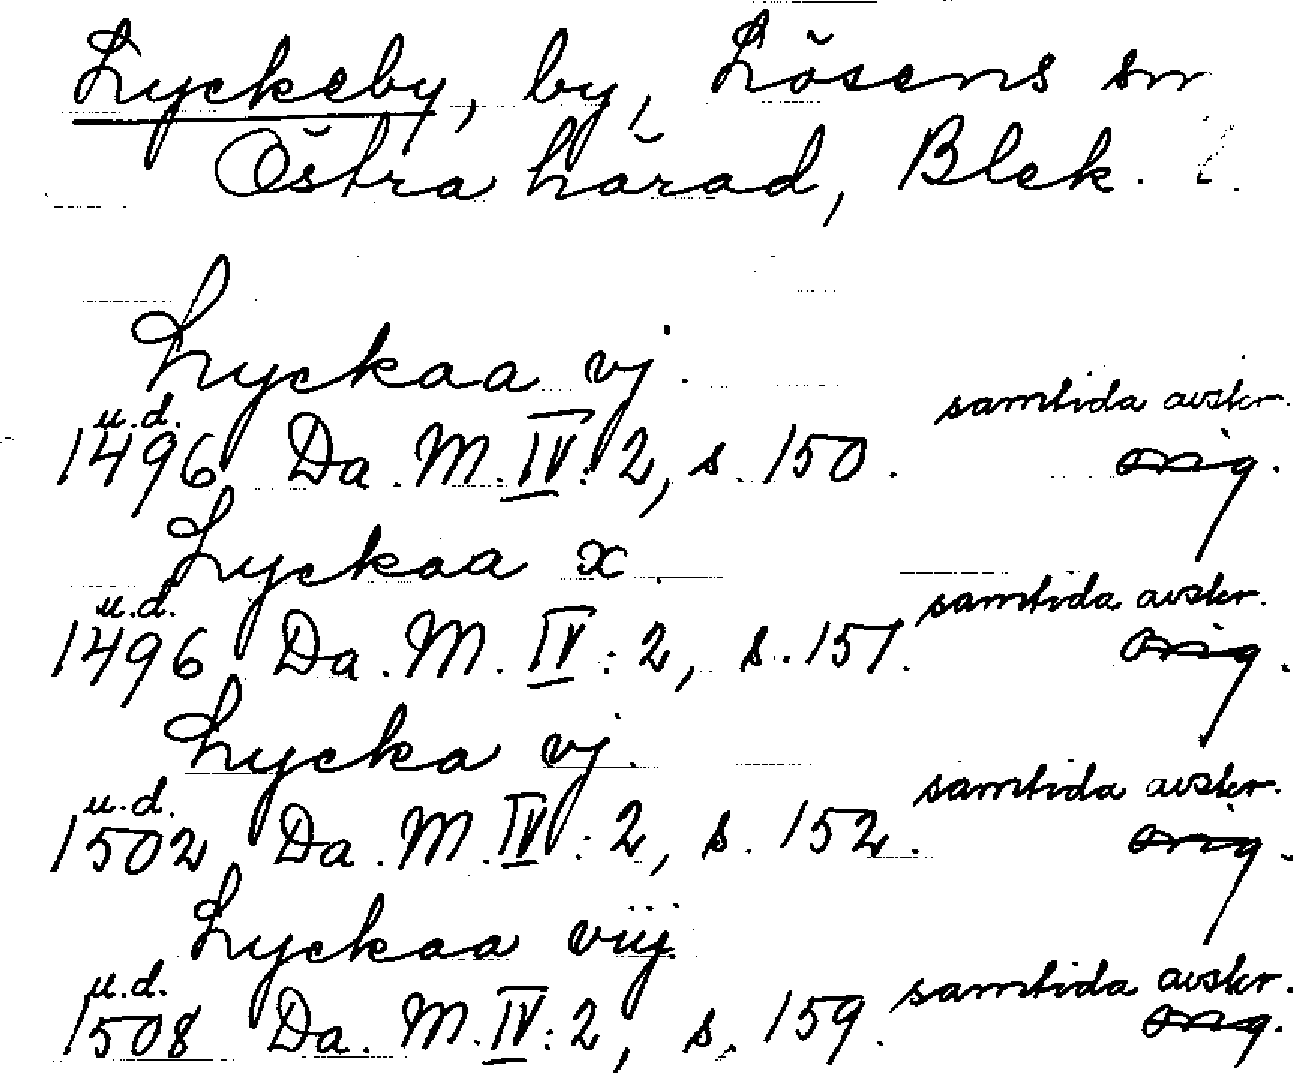 Lyckeby, by, Lösens sn
Östra härad, Blek. l.
Lyckaa vj.
u.d. samtida avskr.
1496 Da. M. IV: 2, s. 150. orig.
Lyckaa x
u.d. samtida avskr.
1496 Da. M. IV: 2, s. 151. orig.
Lycka vj.
u.d. samtida avskr.
1502 Da. M. IV: 2, s. 152. orig.
Lyckaa viij.
u.d. samtida avskr.
1508 Da. M. IV: 2, s. 159. orig.